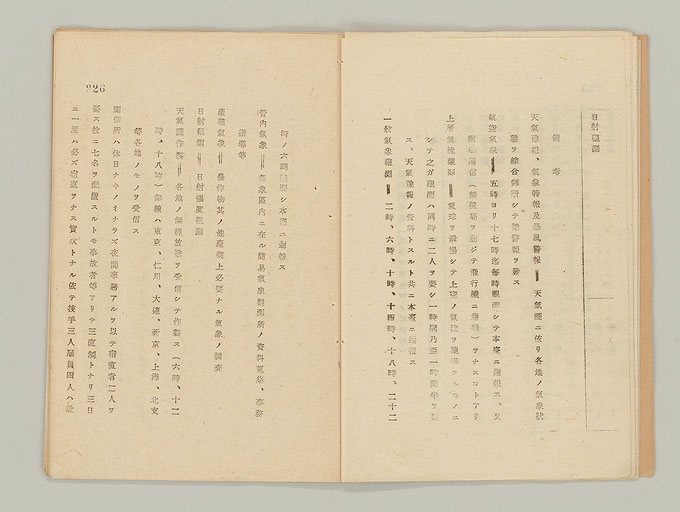 日射觀測
備考
天氣豫報、氣象特報及暴風警報＝天氣圖ニ依リ各地ノ氣象狀
態ヲ綜合判斷シテ豫警報ヲ發ス
航空氣象＝五時ヨリ十七時迄每時觀測シテ本臺ニ通報ス、又
ヲナスコトアリ
上層氣流觀測＝氣球ヲ飛揚シテ上空ノ氣流ヲ觀測スルモノニ
シテ之ガ觀測ハ同時ニ二人ヲ要シ一時間乃至一時間半ヲ要
ス、天氣豫報ノ資料トスルト共ニ本臺ニ通報ス
一般氣象觀測＝二時、六時、十時、十四時、十八時、二十二
時ノ六回觀測シ本臺ニ通報ス
管內氣象＝氣象區內ニ在ル簡易氣象觀測所ノ資料蒐集、事務
指導等
產業氣象＝農作物其ノ他產業上必要ナル氣象ノ調查
日射觀測＝日射量觀測
天氣圖作製＝各地ノ無線放送ヲ受信シテ作製ス（六時、十二
時、十八時）無線ハ東京、仁川、大連、新京、上海、北支
等各地ノモノヲ受信ス
測候所ハ休日ナキノミナラズ夜間事務アルヲ以テ宿直者二人ヲ
要ス故ニ七名ヲ配置スルトモ事故者等アリテ三直制トナリ三日
ニ一度ハ必ズ宿直ヲナス實狀トナル依テ技手三人雇員四人ハ最
926